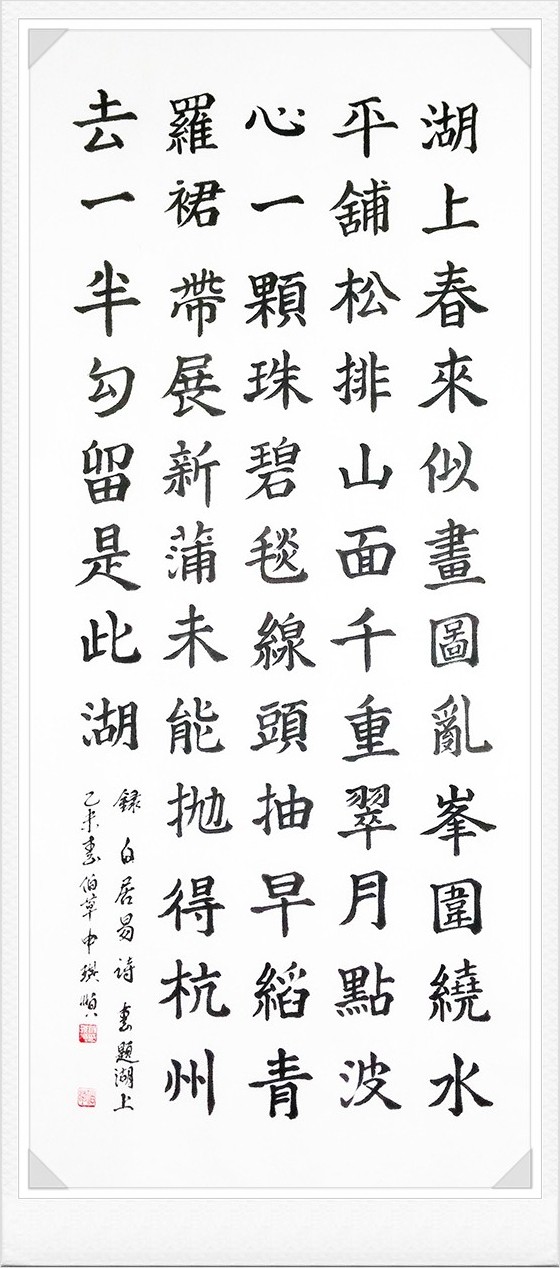 湖上春來似畫圖亂峯圍繞水
平舖松排山面千重翠月點波
心一顆珠碧毯線頭抽早縚青
羅裙帶展新蒲未能抛得杭州
去一半勾留是此湖
録白居易詩 春題湖上
乙未春伯草申